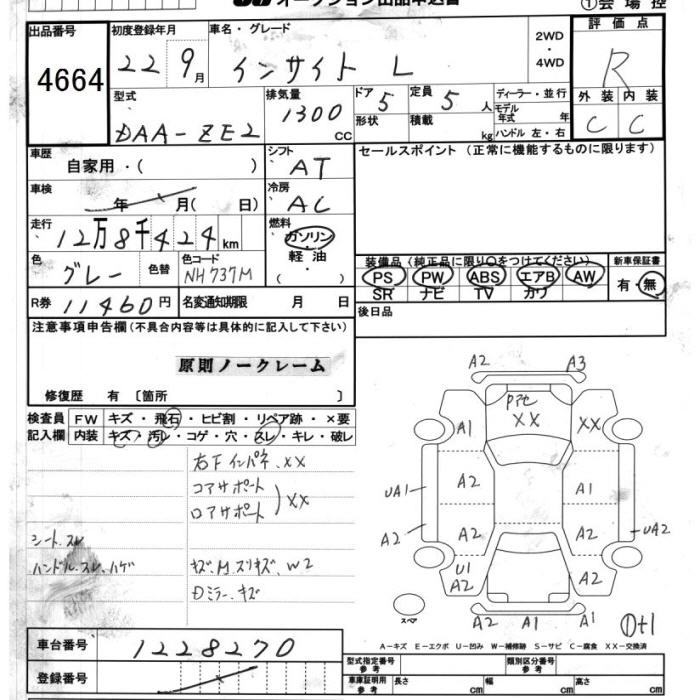 オークション出品申込書
①会場控
出品番号 初度登録年月 車名・グレード 評価点
4664 22 9月 インサイト L 2WD・4WD R
型式 排気量 ドア 5 定員 5人 ディーラー・並行 外装 内装
DAA-ZE2 1300cc 形状 積載 kg モデル年式 年 C C
ハンドル 左・右
車歴 自家用・( ) シフト AT セールスポイント (正常に機能するものに限ります)
車検 年 月( 日) 冷房 AC
走行 12万8千424km 燃料 ガソリン・軽油・
装備品(純正品に限り○をつけてください) 新車保証書
色 グレー 色替 色コード NH737M PS PW ABS エアB AW 有・無
SR ナビ TV カワ
R券 11460円 名変通知期限 月 日 後日品
注意事項申告欄(不具合内容等は具体的に記入して下さい)
原則ノークレーム
修復歴 有 〔箇所 〕
検査員 FW キズ・飛石・ヒビ割・リペア跡・×要
記入欄 内装 キズ・汚レ・コゲ・穴・スレ・キレ・破レ
右下インパネ.XX
コアサポート
ロアサポート XX
シート.スレ
ハンドル.スレ.ハゲ
キズ.M.スリキズ.W2
Dミラー.キズ
A2 A3
Pアセ
XX XX
A1
A2 A1
UA1
A2 A2 A2 UA2
U1
A2 A2
A1 A1
スペア
A-キズ E-エクボ U-凹み W-補修跡 S-サビ C-腐食 XX-交換済
車台番号 1228270
登録番号
型式指定番号 参考 類別区分番号 参考
車庫証明用 参考 長さ cm 幅 cm 高さ cm